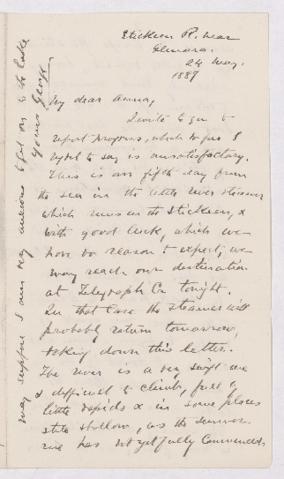 Stickeen R. near
Glenora.
24 May.
1887
My dear Anna,
I write to you to
report progress, which so far I
regret to say is unsatisfactory.
This is our fifth day from
the sea in the little river steamer
which runs on the Stickeen, &
with good luck, which we
have no reason to expect, we
may reach our destination
at Telegraph Cr. tonight.
In that case the steamer will
probably return tomorrow,
taking down this letter.
The river is a very swift one
& difficult to climb, full of
little rapids & in some places
still shallow, as the summer
rise has not yet fully commenced.
may suppose I am very anxious to get on to the lake
Yours George